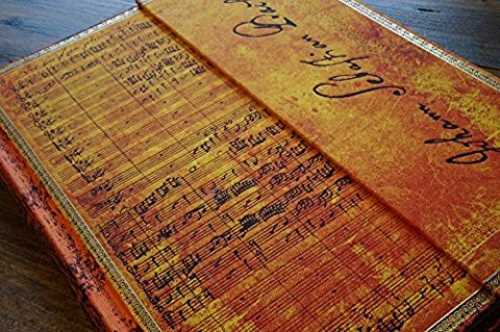 Johann Sebastian Bach